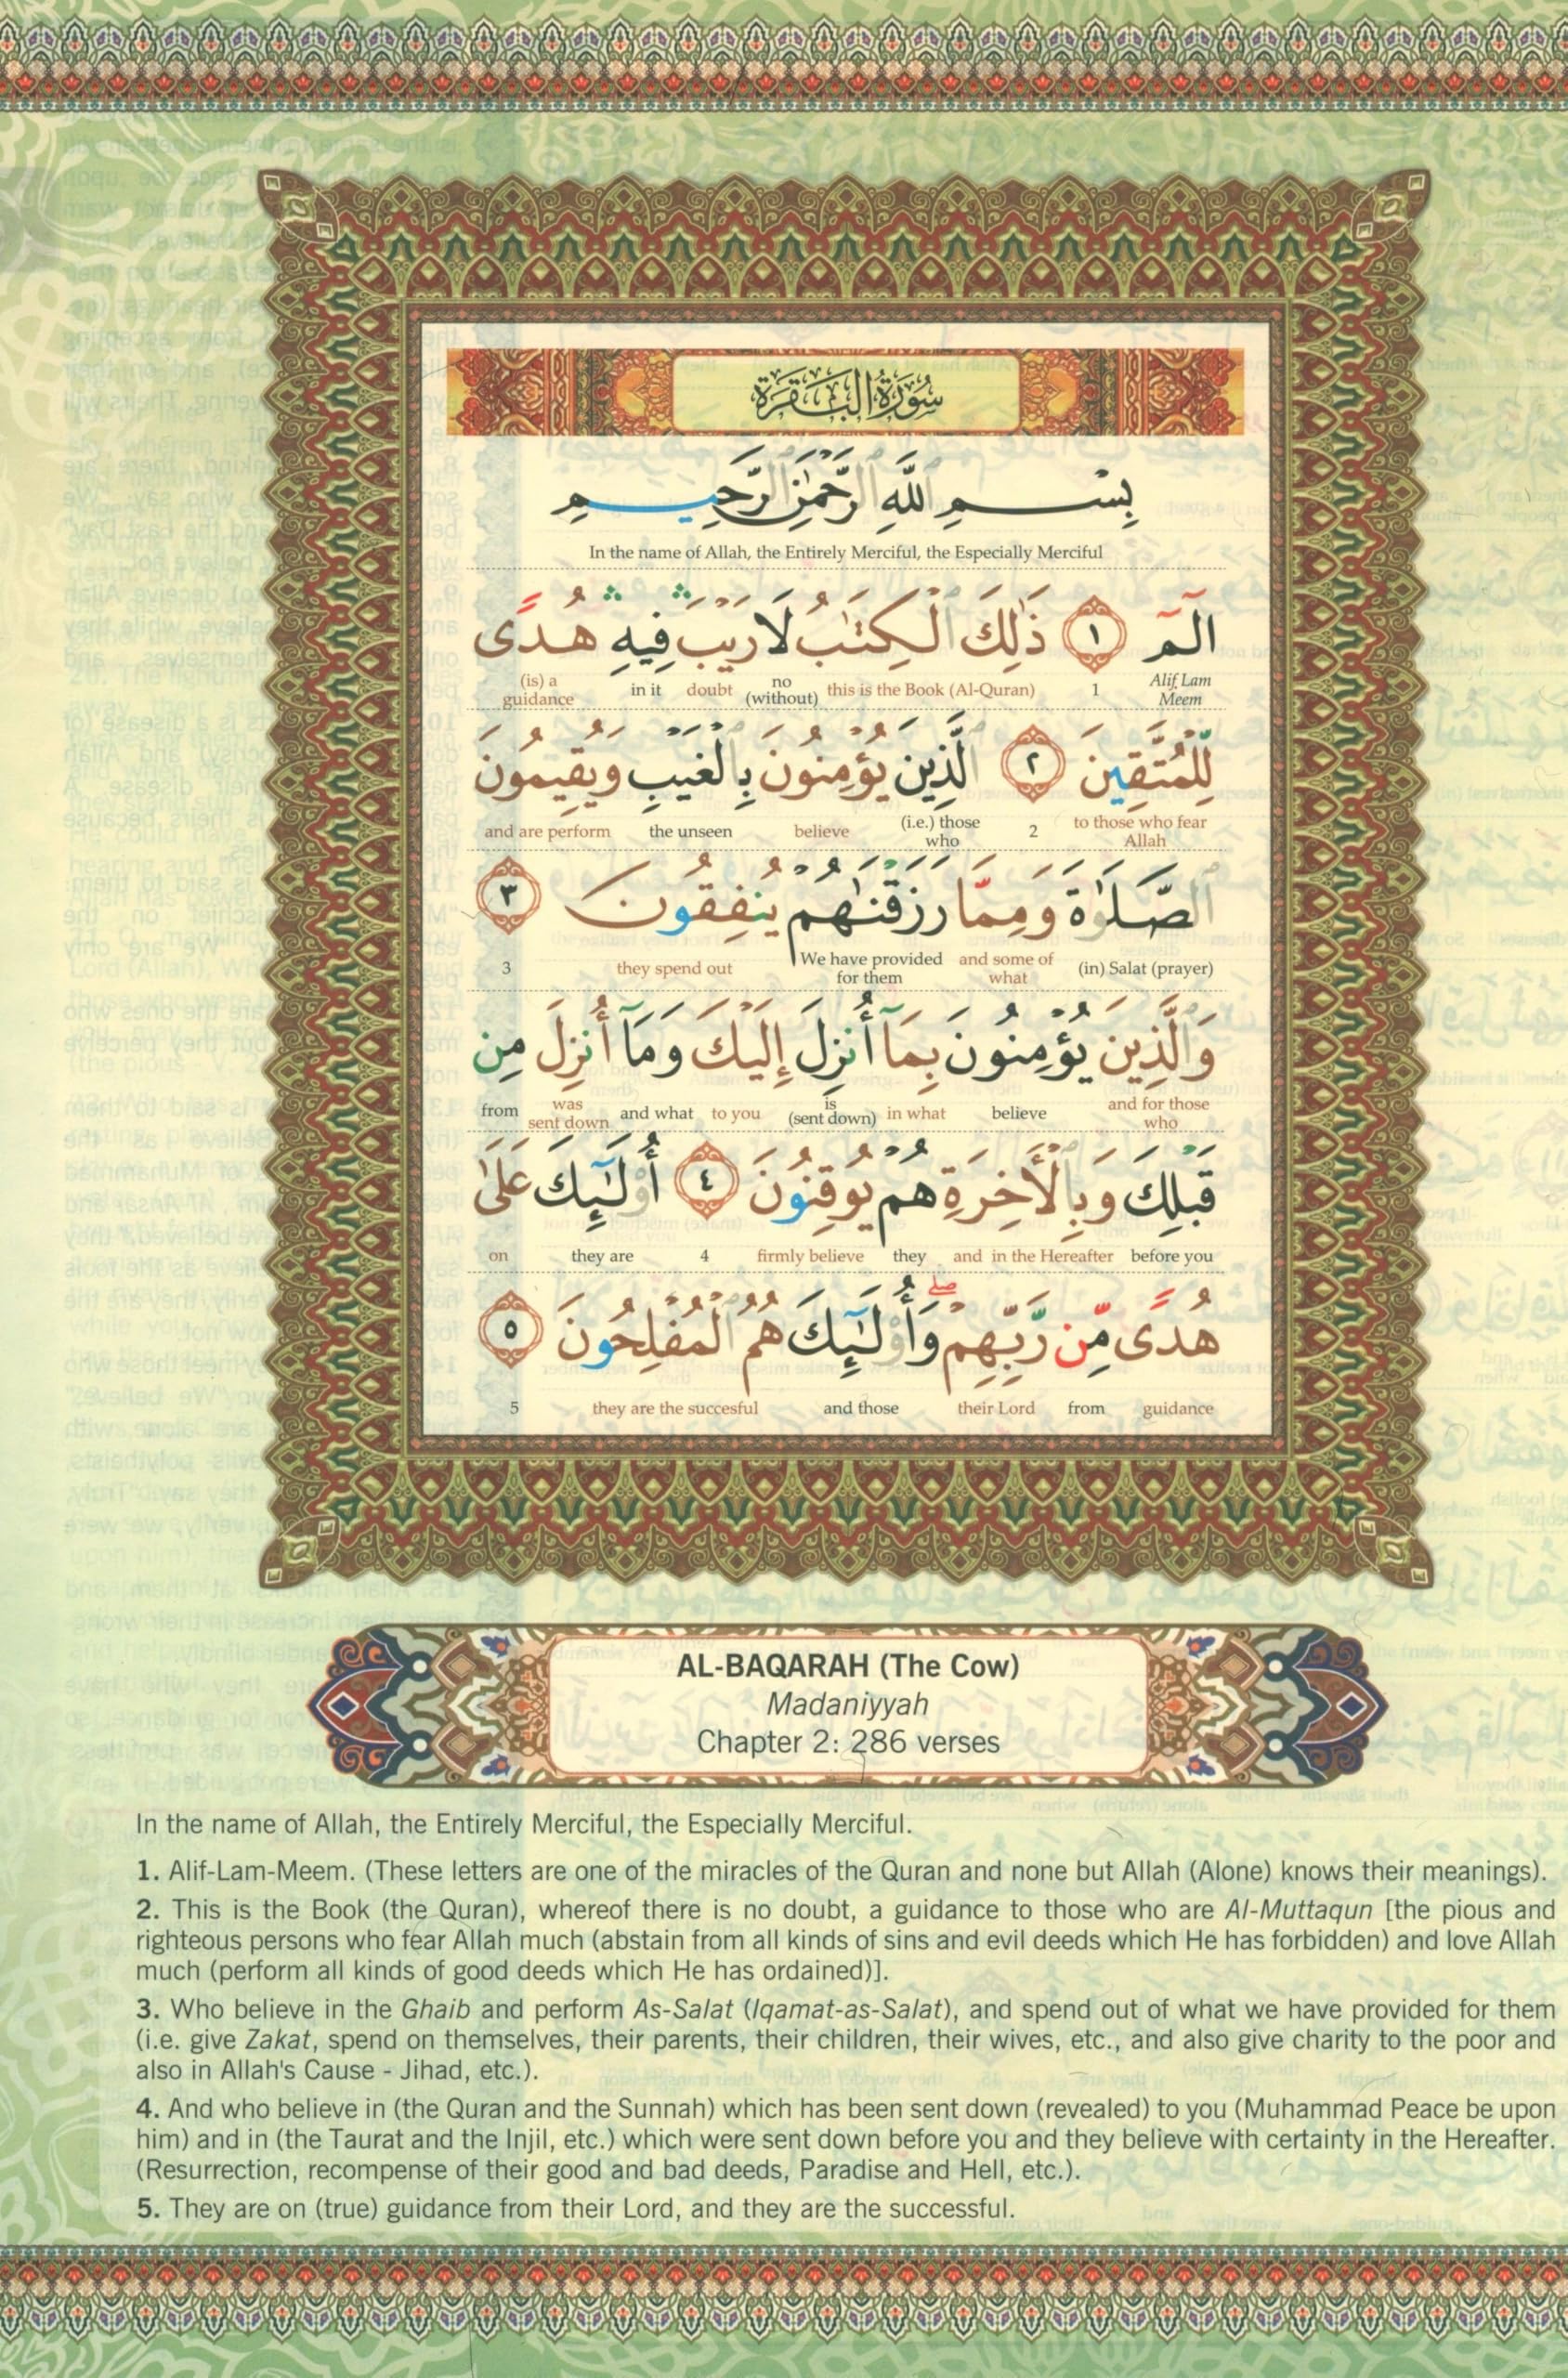 سُورَةُ الْبَقَرَةِ
بِسْمِ اللَّهِ الرَّحْمَٰنِ الرَّحِيمِ
In the name of Allah, the Entirely Merciful, the Especially Merciful
الٓمٓ ١ ذَٰلِكَ الْكِتَٰبُ لَا رَيْبَ ۛ فِيهِ ۛ هُدًى
Alif Lam Meem 1 this is the Book (Al-Quran) no (without) doubt in it (is) a guidance
لِّلْمُتَّقِينَ ٢ الَّذِينَ يُؤْمِنُونَ بِالْغَيْبِ وَيُقِيمُونَ
to those who fear Allah 2 (i.e.) those who believe the unseen and are perform
الصَّلَوٰةَ وَمِمَّا رَزَقْنَٰهُمْ يُنفِقُونَ ٣
(in) Salat (prayer) and some of what We have provided for them they spend out 3
وَالَّذِينَ يُؤْمِنُونَ بِمَآ أُنزِلَ إِلَيْكَ وَمَآ أُنزِلَ مِن
and for those who believe in what is (sent down) to you and what was sent down from
قَبْلِكَ وَبِالْأَخِرَةِ هُمْ يُوقِنُونَ ٤ أُو۟لَٰٓئِكَ عَلَىٰ
before you and in the Hereafter they firmly believe 4 they are on
هُدًى مِّن رَّبِّهِمْ ۖ وَأُو۟لَٰٓئِكَ هُمُ الْمُفْلِحُونَ ٥
guidance from their Lord and those they are the succesful 5
AL-BAQARAH (The Cow)
Madaniyyah
Chapter 2: 286 verses
In the name of Allah, the Entirely Merciful, the Especially Merciful.
1. Alif-Lam-Meem. (These letters are one of the miracles of the Quran and none but Allah (Alone) knows their meanings).
2. This is the Book (the Quran), whereof there is no doubt, a guidance to those who are Al-Muttaqun [the pious and
righteous persons who fear Allah much (abstain from all kinds of sins and evil deeds which He has forbidden) and love Allah
much (perform all kinds of good deeds which He has ordained)].
3. Who believe in the Ghaib and perform As-Salat (Iqamat-as-Salat), and spend out of what we have provided for them
(i.e. give Zakat, spend on themselves, their parents, their children, their wives, etc., and also give charity to the poor and
also in Allah's Cause - Jihad, etc.).
4. And who believe in (the Quran and the Sunnah) which has been sent down (revealed) to you (Muhammad Peace be upon
him) and in (the Taurat and the Injil, etc.) which were sent down before you and they believe with certainty in the Hereafter.
(Resurrection, recompense of their good and bad deeds, Paradise and Hell, etc.).
5. They are on (true) guidance from their Lord, and they are the successful.